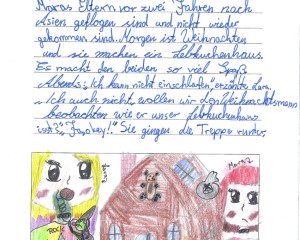 Maras Eltern vor zwei Jahren nach
Asien geflogen sind und nicht wieder
gekommen sind. Morgen ist Weihnachten
und sie machen ein Lebkuchenhaus.
Es macht den beiden so viel Spaß
Abends: „Ich kann nicht einschlafen"
„Ich auch nicht, wollen wir den Weihnachtsmann
beobachten wie er unser Lebkuchenhaus
isst?" okay!" Sie gingen die Treppe runter,
ROCK